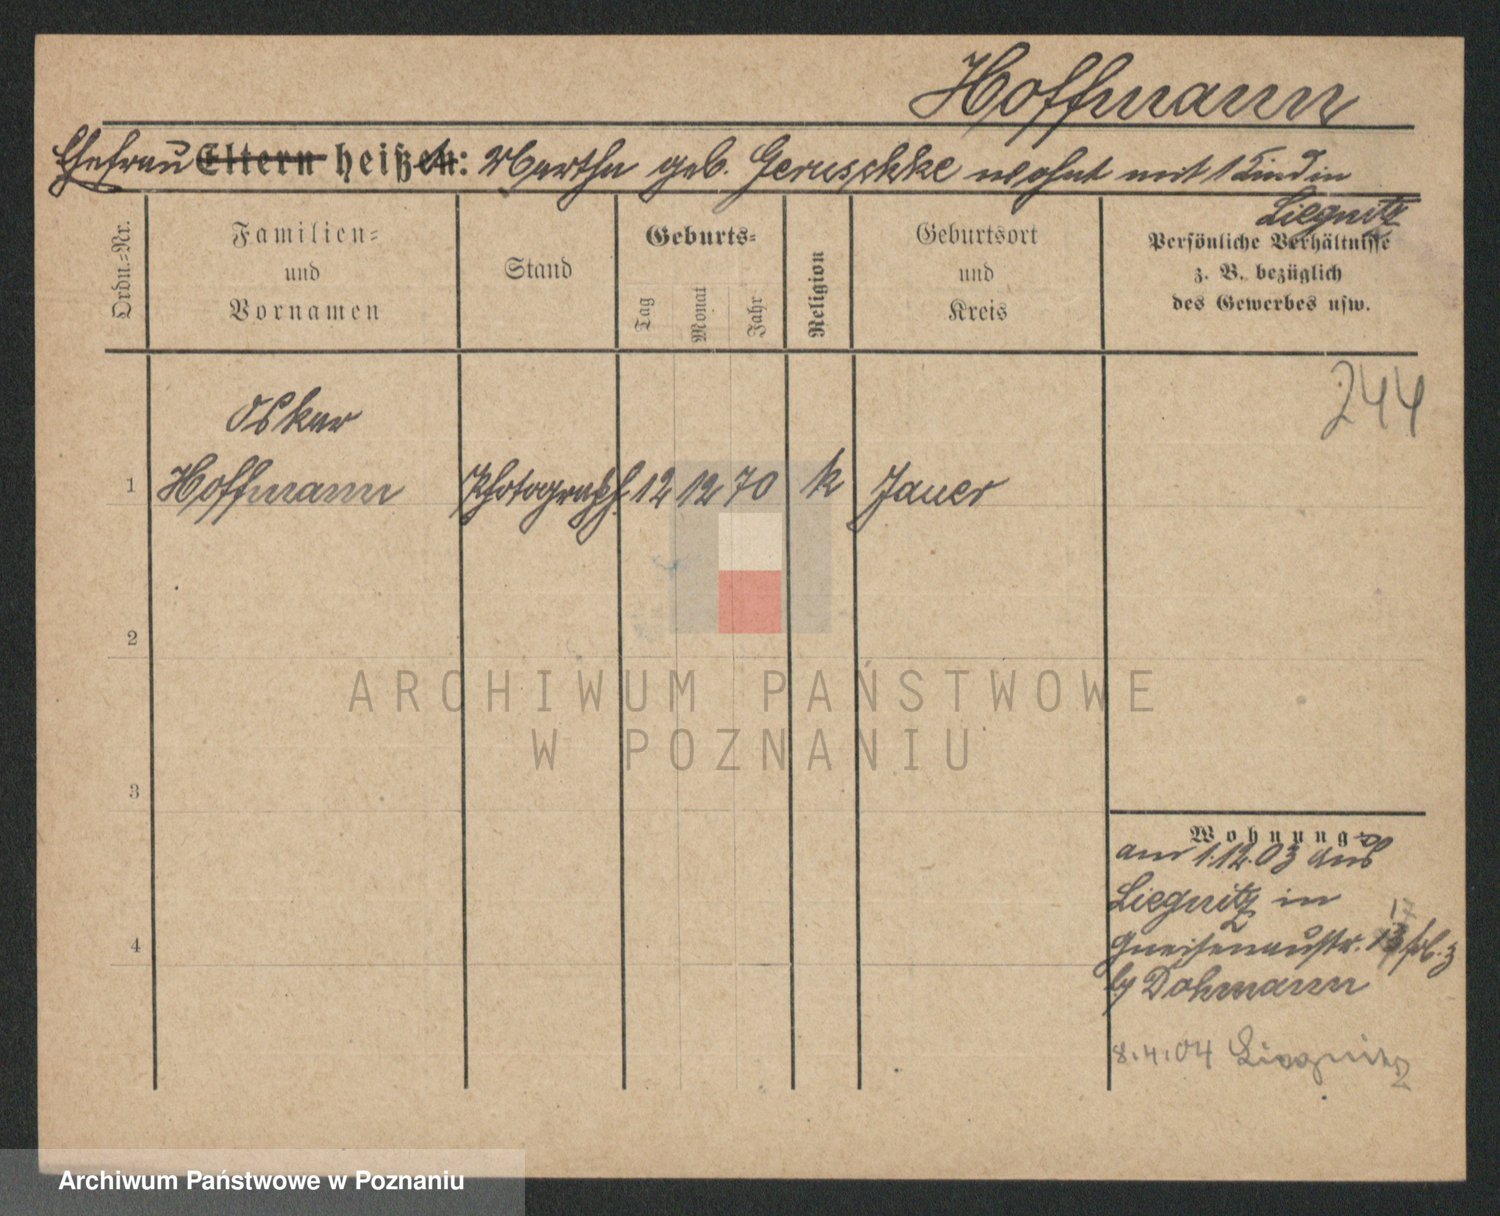 Hoffmann
Ehefrau Eltern heißen: Martha geb. Geruschke wohnt mit 1 Kind in
Liegnitz
Ordn.-Nr.
Familien-
und
Vornamen
Stand
Geburts-
Tag
Monat
Jahr
Religion
Geburtsort
und
Kreis
Persönliche Verhältnisse
z. B. bezüglich
des Gewerbes usw.
244
Oskar
1 Hoffmann Photograph. 12 12 70 k Jauer
2
3
4
ARCHIWUM PAŃSTWOWE
W POZNANIU
Wohnung
am 1.12.03 aus
Liegnitz in
Gneisenaustr.
by Dohmann
8.4.04 Liegnitz
Archiwum Państwowe w Poznaniu